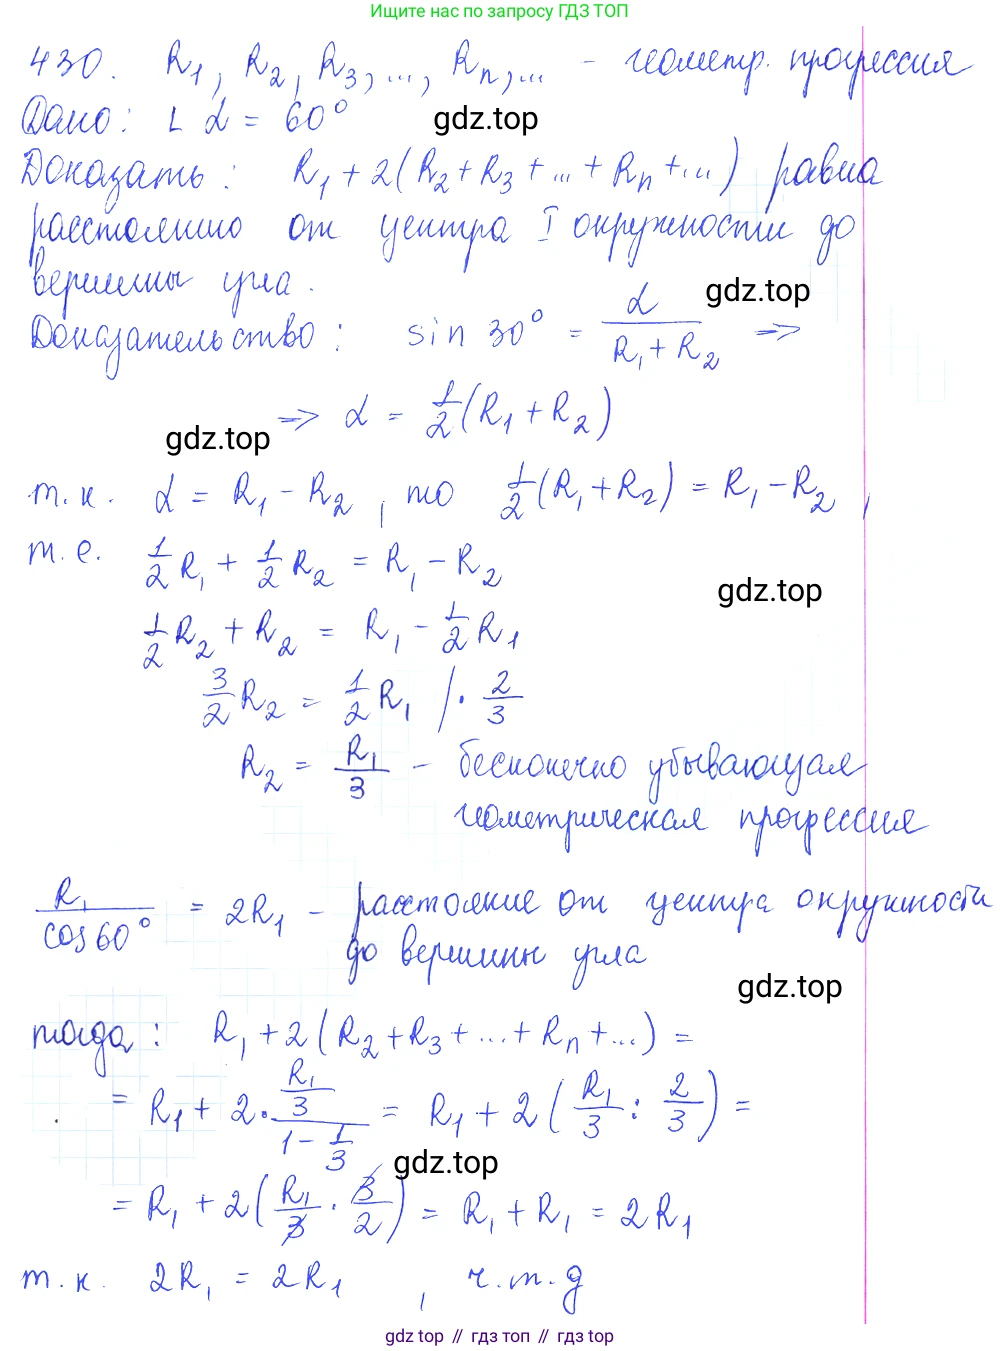 Ищите нас по запросу ГДЗ ТОП
430. R₁, R₂, R₃, ..., Rₙ, ... - геометр. прогрессия
Дано: ∟ α = 60°
gdz.top
Доказать: R₁ + 2(R₂ + R₃ + ... + Rₙ + ...) равна
расстоянию от центра I окружности до
вершины угла.
gdz.top
Доказательство: sin 30° = α/(R₁ + R₂) =>
=> α = 1/2(R₁ + R₂)
gdz.top
т.к. α = R₁ - R₂, то 1/2(R₁ + R₂) = R₁ - R₂,
т.е. 1/2 R₁ + 1/2 R₂ = R₁ - R₂
gdz.top
1/2 R₂ + R₂ = R₁ - 1/2 R₁
3/2 R₂ = 1/2 R₁ | · 2/3
R₂ = R₁/3 - бесконечно убывающая
геометрическая прогрессия
R₁/cos 60° = 2R₁ - расстояние от центра окружности
до вершины угла
gdz.top
тогда: R₁ + 2(R₂ + R₃ + ... + Rₙ + ...) =
= R₁ + 2 · (R₁/3)/(1 - 1/3) = R₁ + 2(R₁/3 : 2/3) =
gdz.top
= R₁ + 2(R₁/3 · 3/2) = R₁ + R₁ = 2R₁
т.к. 2R₁ = 2R₁, ч.т.д
gdz.top // гдз топ // гдз top